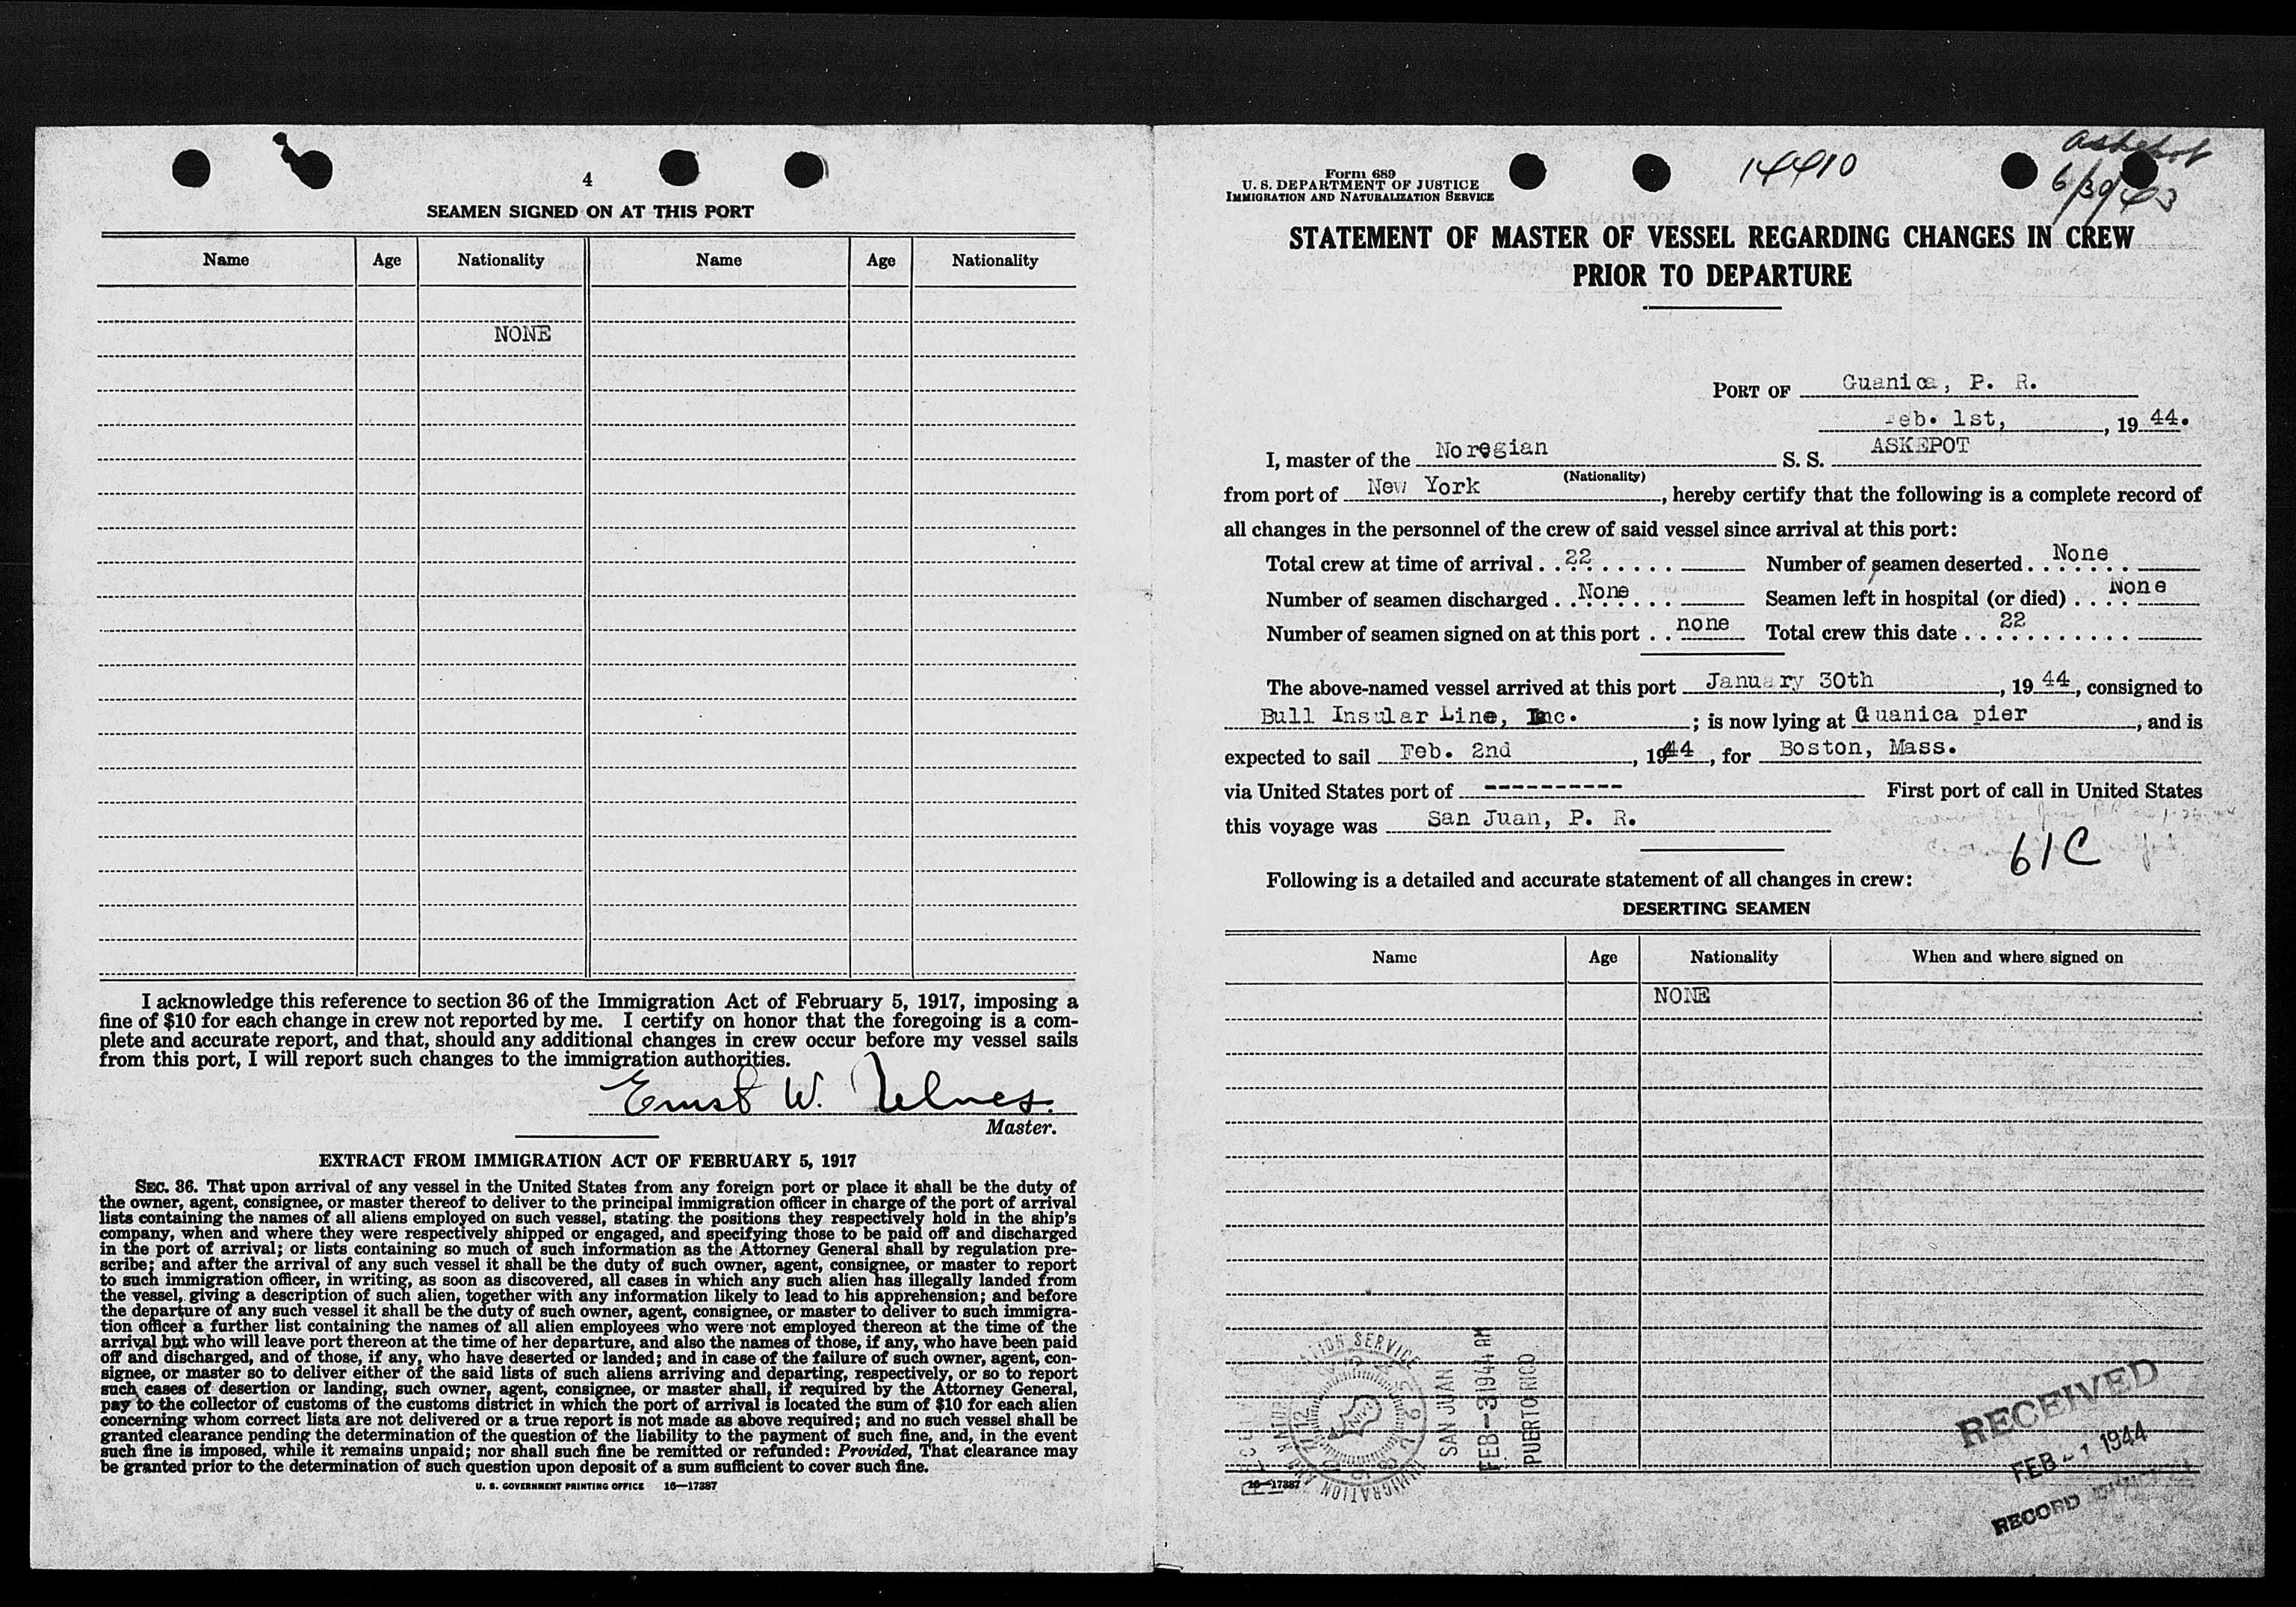 4
SEAMEN SIGNED ON AT THIS PORT
Name Age Nationality Name Age Nationality
NONE
I acknowledge this reference to section 36 of the Immigration Act of February 5, 1917, imposing a
fine of $10 for each change in crew not reported by me. I certify on honor that the foregoing is a com-
plete and accurate report, and that, should any additional changes in crew occur before my vessel sails
from this port, I will report such changes to the immigration authorities.
Ernst W.
Master.
EXTRACT FROM IMMIGRATION ACT OF FEBRUARY 5, 1917
SEC. 36. That upon arrival of any vessel in the United States from any foreign port or place it shall be the duty of
the owner, agent, consignee, or master thereof to deliver to the principal immigration officer in charge of the port of arrival
lists containing the names of all aliens employed on such vessel, stating the positions they respectively hold in the ship's
company, when and where they were respectively shipped or engaged, and specifying those to be paid off and discharged
in the port of arrival; or lists containing so much of such information as the Attorney General shall by regulation pre-
scribe; and after the arrival of any such vessel it shall be the duty of such owner, agent, consignee, or master to report
to such immigration officer, in writing, as soon as discovered, all cases in which any such alien has illegally landed from
the vessel, giving a description of such alien, together with any information likely to lead to his apprehension; and before
the departure of any such vessel it shall be the duty of such owner, agent, consignee, or master to deliver to such immigra-
tion officer a further list containing the names of all alien employees who were not employed thereon at the time of the
arrival but who will leave port thereon at the time of her departure, and also the names of those, if any, who have been paid
off and discharged, and of those, if any, who have deserted or landed; and in case of the failure of such owner, agent, con-
signee, or master so to deliver either of the said lists of such aliens arriving and departing, respectively, or so to report
such cases of desertion or landing, such owner, agent, consignee, or master shall, if required by the Attorney General,
pay to the collector of customs of the customs district in which the port of arrival is located the sum of $10 for each alien
concerning whom correct lists are not delivered or a true report is not made as above required; and no such vessel shall be
granted clearance pending the determination of the question of the liability to the payment of such fine, and, in the event
such fine is imposed, while it remains unpaid; nor shall such fine be remitted or refunded: Provided, That clearance may
be granted prior to the determination of such question upon deposit of a sum sufficient to cover such fine.
U. S. GOVERNMENT PRINTING OFFICE 16—17387
Askepot
6/30/43
14410
Form 689
U. S. DEPARTMENT OF JUSTICE
IMMIGRATION AND NATURALIZATION SERVICE
STATEMENT OF MASTER OF VESSEL REGARDING CHANGES IN CREW
PRIOR TO DEPARTURE
PORT OF Guanica, P. R.
Feb. 1st, , 19 44.
I, master of the Noregian S. S. ASKEPOT
(Nationality)
from port of New York , hereby certify that the following is a complete record of
all changes in the personnel of the crew of said vessel since arrival at this port:
Total crew at time of arrival . . 22 Number of seamen deserted . None
Number of seamen discharged . None Seamen left in hospital (or died) . . . . None
Number of seamen signed on at this port . . none Total crew this date . . . 22
The above-named vessel arrived at this port January 30th , 19 44, consigned to
Bull Insular Line, Inc. ; is now lying at Guanica pier , and is
expected to sail Feb. 2nd , 1944 , for Boston, Mass.
via United States port of ---------- First port of call in United States
this voyage was San Juan, P. R.
61C
Following is a detailed and accurate statement of all changes in crew:
DESERTING SEAMEN
Name Age Nationality When and where signed on
NONE
IMMIGRATION AND NATURALIZATION SERVICE
SAN JUAN
FEB-3 1944 AM
PUERTO RICO
RECEIVED
FEB 21 1944
RECORD
16—17387